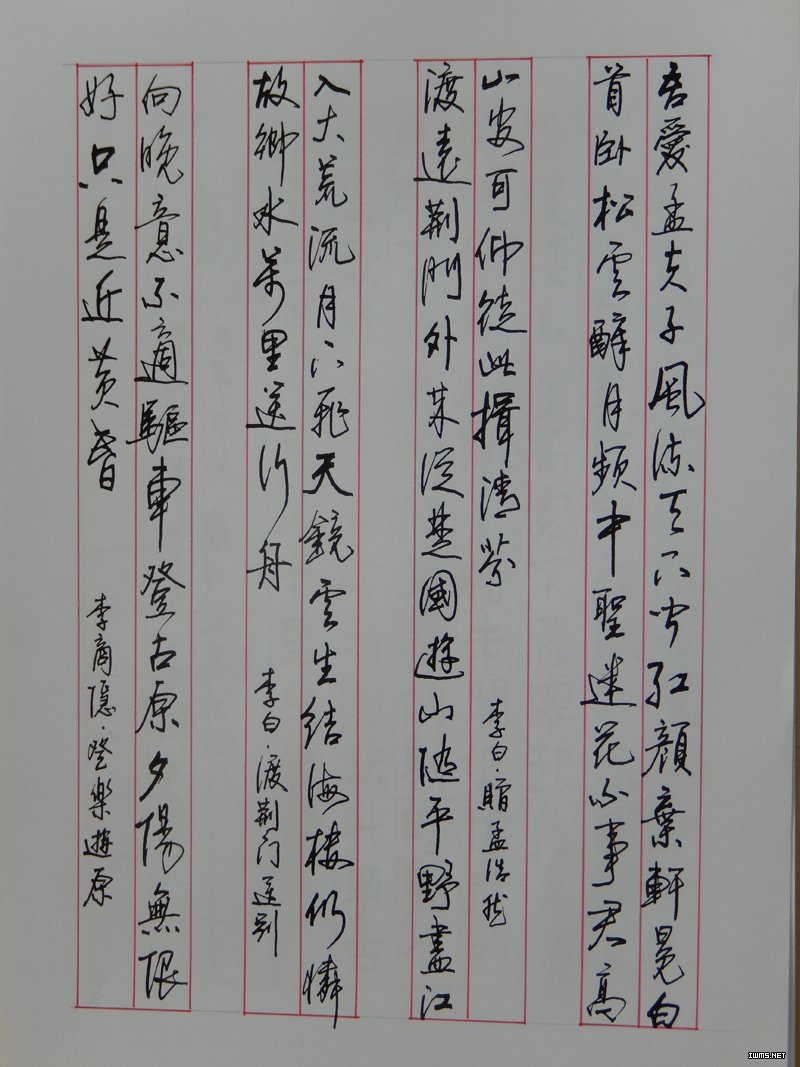 吾愛孟夫子風流天下聞紅顏棄軒冕白
首臥松雲醉月頻中聖迷花不事君高
山安可仰徒此揖清芬
李白·贈孟浩然
渡遠荊門外來從楚國遊山隨平野盡江
入大荒流月下飛天鏡雲生結海樓仍憐
故鄉水萬里送行舟
李白·渡荆门送别
向晚意不適驅車登古原夕陽無限
好只是近黃昏
李商隱·登樂遊原
IWMS.NET